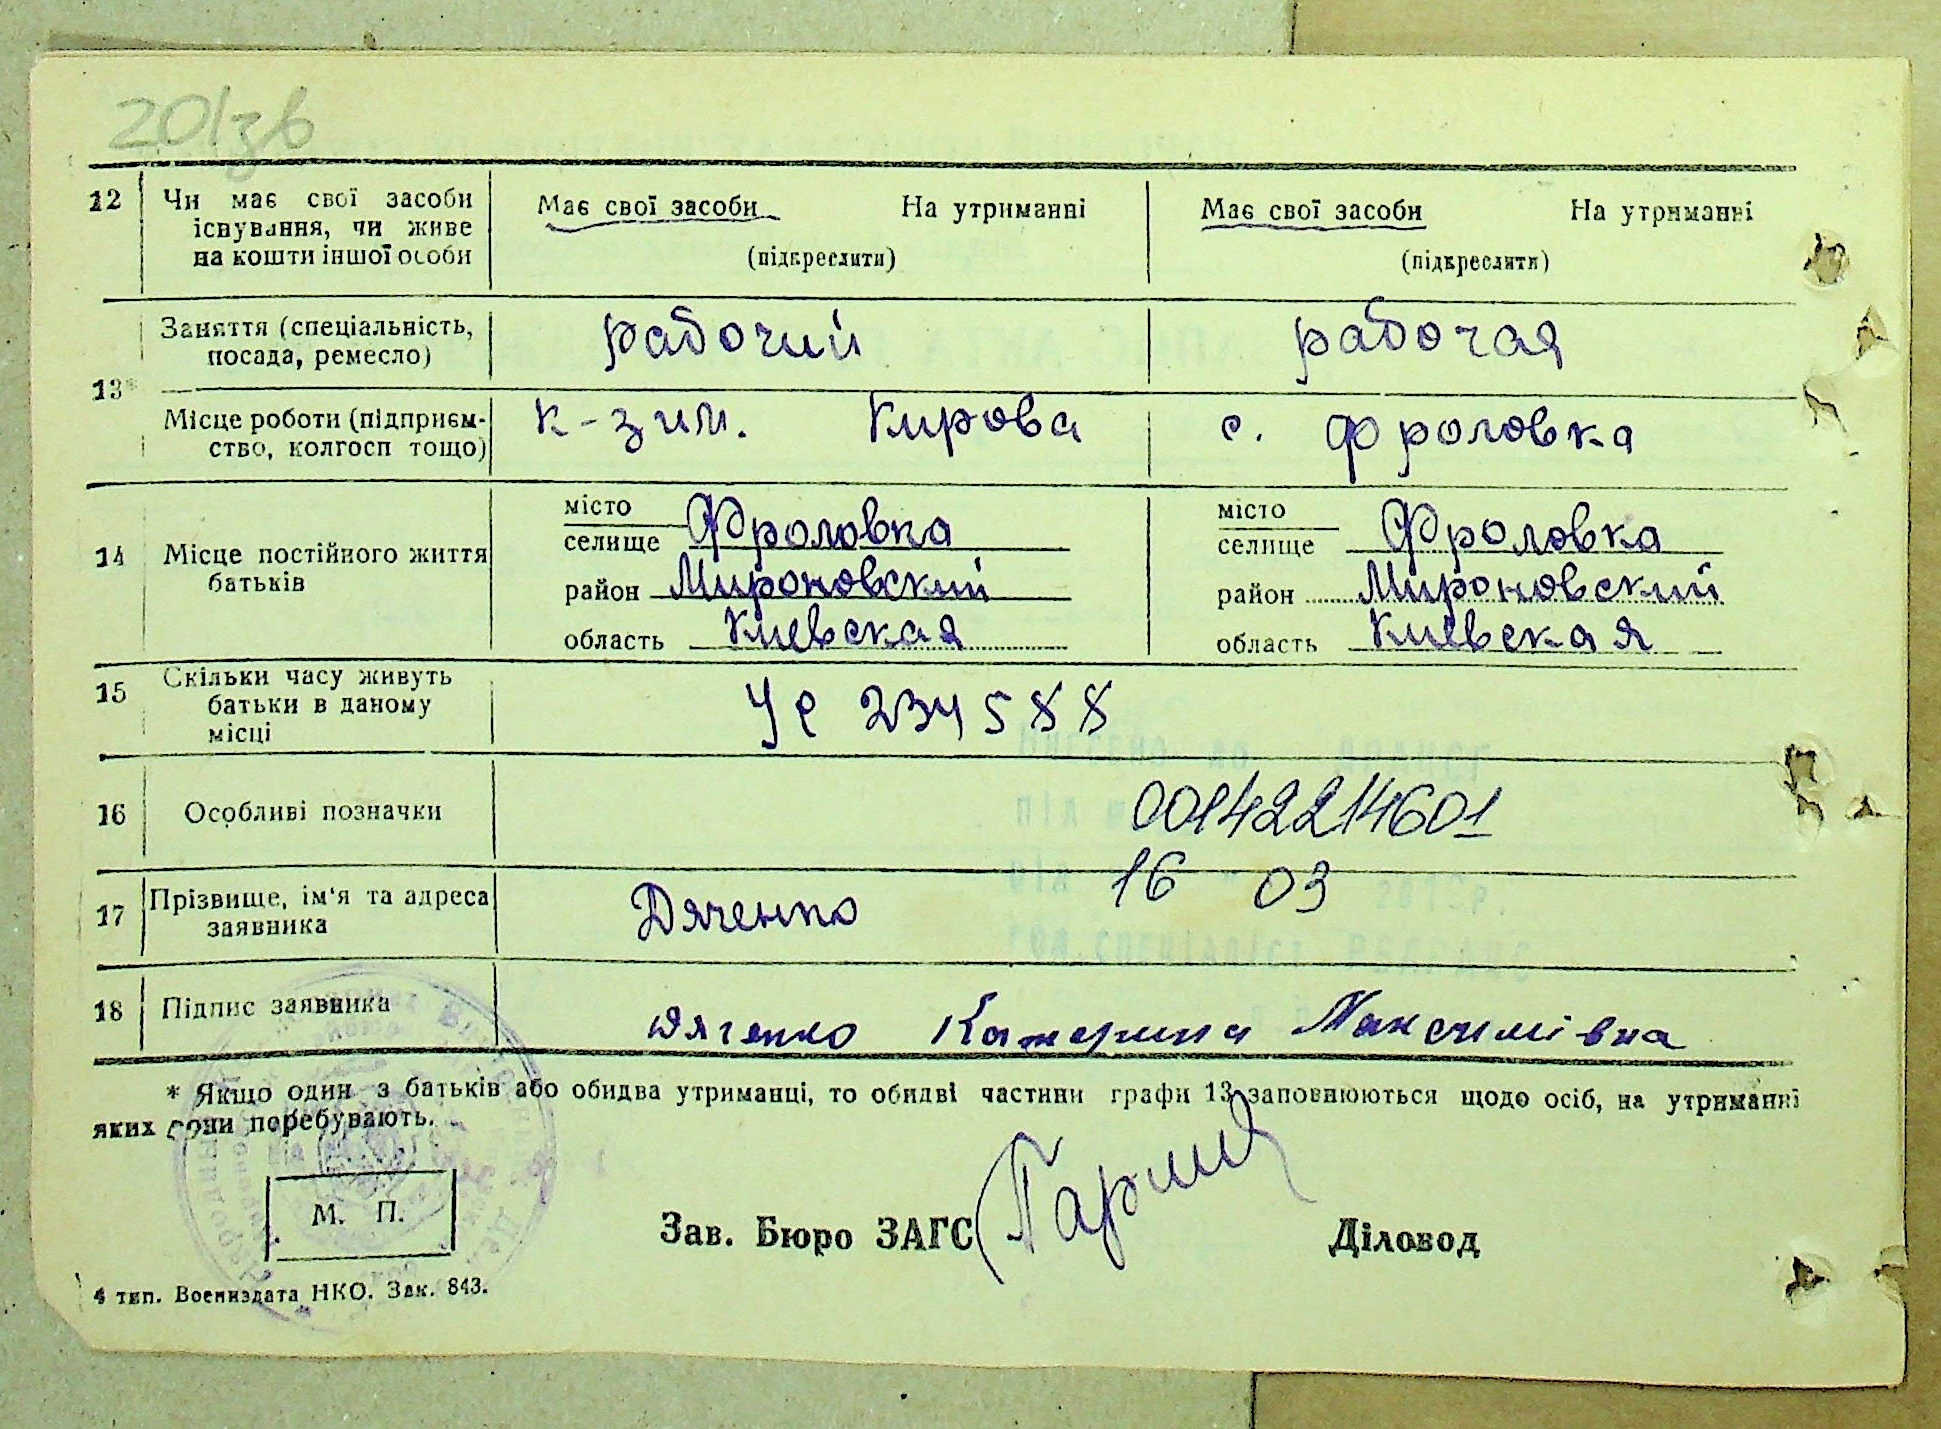 201зв
12 Чи має свої засоби існування, чи живе на кошти іншої особи
Має свої засоби На утриманні
(підкреслити)
Має свої засоби На утриманні
(підкреслити)
13*
Заняття (спеціальність, посада, ремесло)
рабочий
рабочая
Місце роботи (підприємство, колгосп тощо)
к-з им. Кирова
с. Фроловка
14 Місце постійного життя батьків
місто
селище Фроловка
район Мироновский
область Киевская
місто
селище Фроловка
район Мироновский
область Киевская
15 Скільки часу живуть батьки в даному місці
234588
16 Особливі позначки
00142214601
16 03
17 Прізвище, ім'я та адреса заявника
Дяченко
18 Підпис заявника
Дяченко Катерина Максимівна
* Якщо один з батьків або обидва утриманці, то обидві частини графи 13 заповнюються щодо осіб, на утриманні
яких вони перебувають.
М. П.
Зав. Бюро ЗАГС
Діловод
4 тип. Воениздата НКО. Зак. 843.